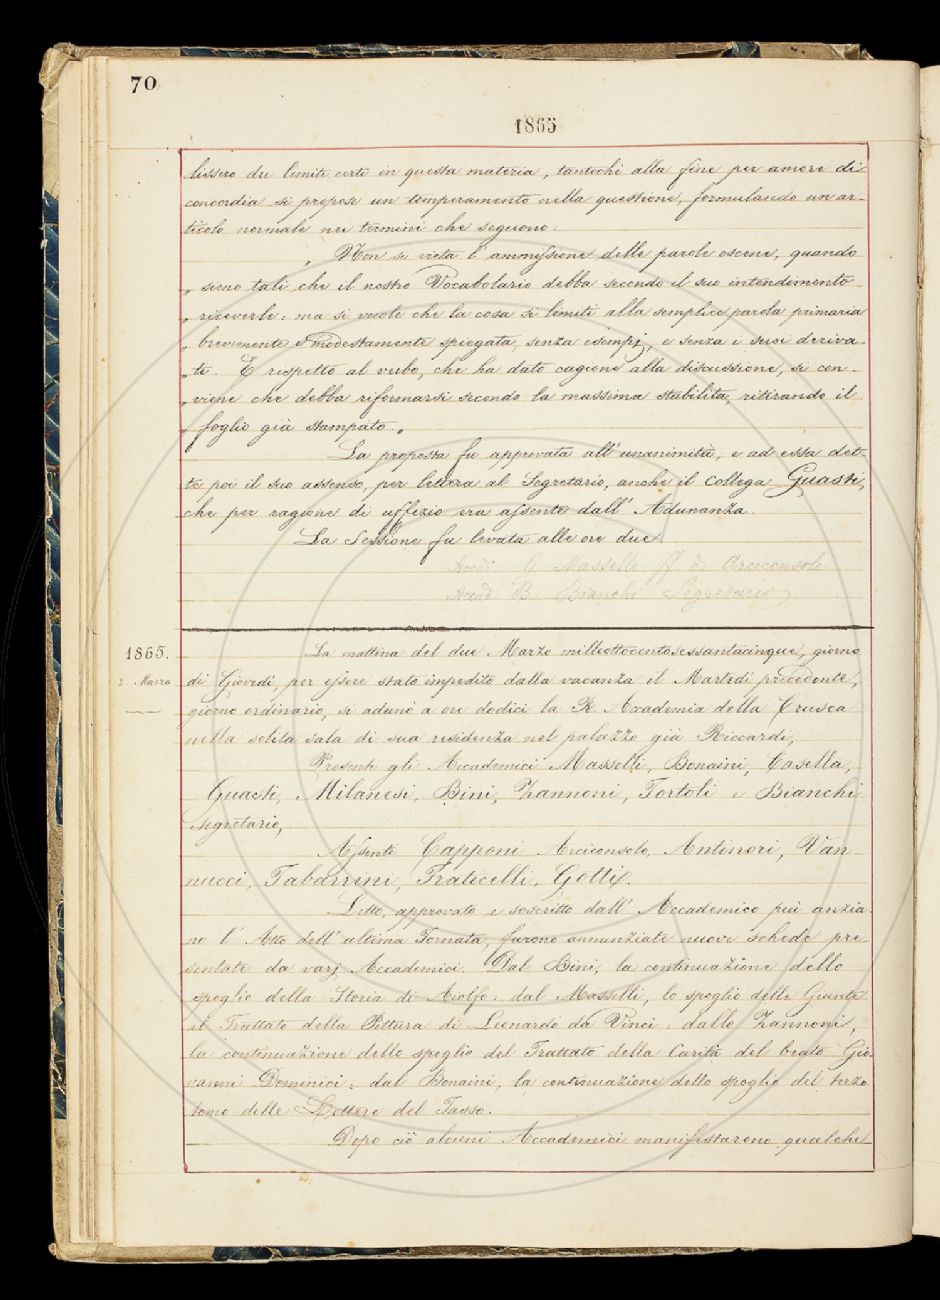 70
1865
lissero dei limiti certi in questa materia, tantochè alla fine per amore di
concordia si propose un temperamento nella questione, formulando un ar-
ticolo normale nei termini che seguono:
„ Non si vieta l'ammissione delle parole oscene, quando
„ sieno tali che il nostro Vocabolario debba secondo il suo intendimento
„ riceverle: ma si vuole che la cosa si limiti alla semplice parola primaria
„ brevemente e modestamente spiegata, senza esempj, e senza i suoi deriva-
„ ti. E rispetto al verbo, che ha dato cagione alla discussione, si con-
„ viene che debba riformarsi secondo la massima stabilita, ritirando il
„ foglio già stampato. „
La proposta fu approvata all'unanimità, e ad essa det-
te poi il suo assenso, per lettera al Segretario, anche il Collega Guasti,
che per ragione di uffizio era assente dall'Adunanza.
La Sessione fu levata alle ore due.
Accad. G Masselli ff di Arciconsolo
Accad B. Bianchi Segretario
1865.
2. Marzo
La mattina del due Marzo milleottocentosessantacinque, giorno
di Giovedì, per essere stato impedito dalla vacanza il Martedì precedente,
giorno ordinario, si adunò a ore dodici la R. Accademia della Crusca
nella solita sala di sua residenza nel palazzo già Riccardi,
Presenti gli Accademici Masselli, Bonaini, Casella,
Guasti, Milanesi, Bini, Zannoni, Tortoli e Bianchi
Segretario,
Assenti Capponi Arciconsolo, Antinori, Van
nucci, Tabarrini, Fraticelli, Gotti.
Letto, approvato e soscritto dall'Accademico più anzia
no l'Atto dell'ultima Tornata, furono annunziate nuove schede pre
sentate da varj Accademici. Dal Bini, la continuazione dello
spoglio della Storia di Aiolfo: dal Masselli, lo spoglio delle Giunte
al Trattato della Pittura di Leonardo da Vinci: dallo Zannoni,
la continuazione dello spoglio del Trattato della Carità del beato Gio-
vanni Dominici: dal Bonaini, la continuazione dello spoglio del terzo
tomo delle Lettere del Tasso.
Dopo ciò alcuni Accademici manifestarono qualche